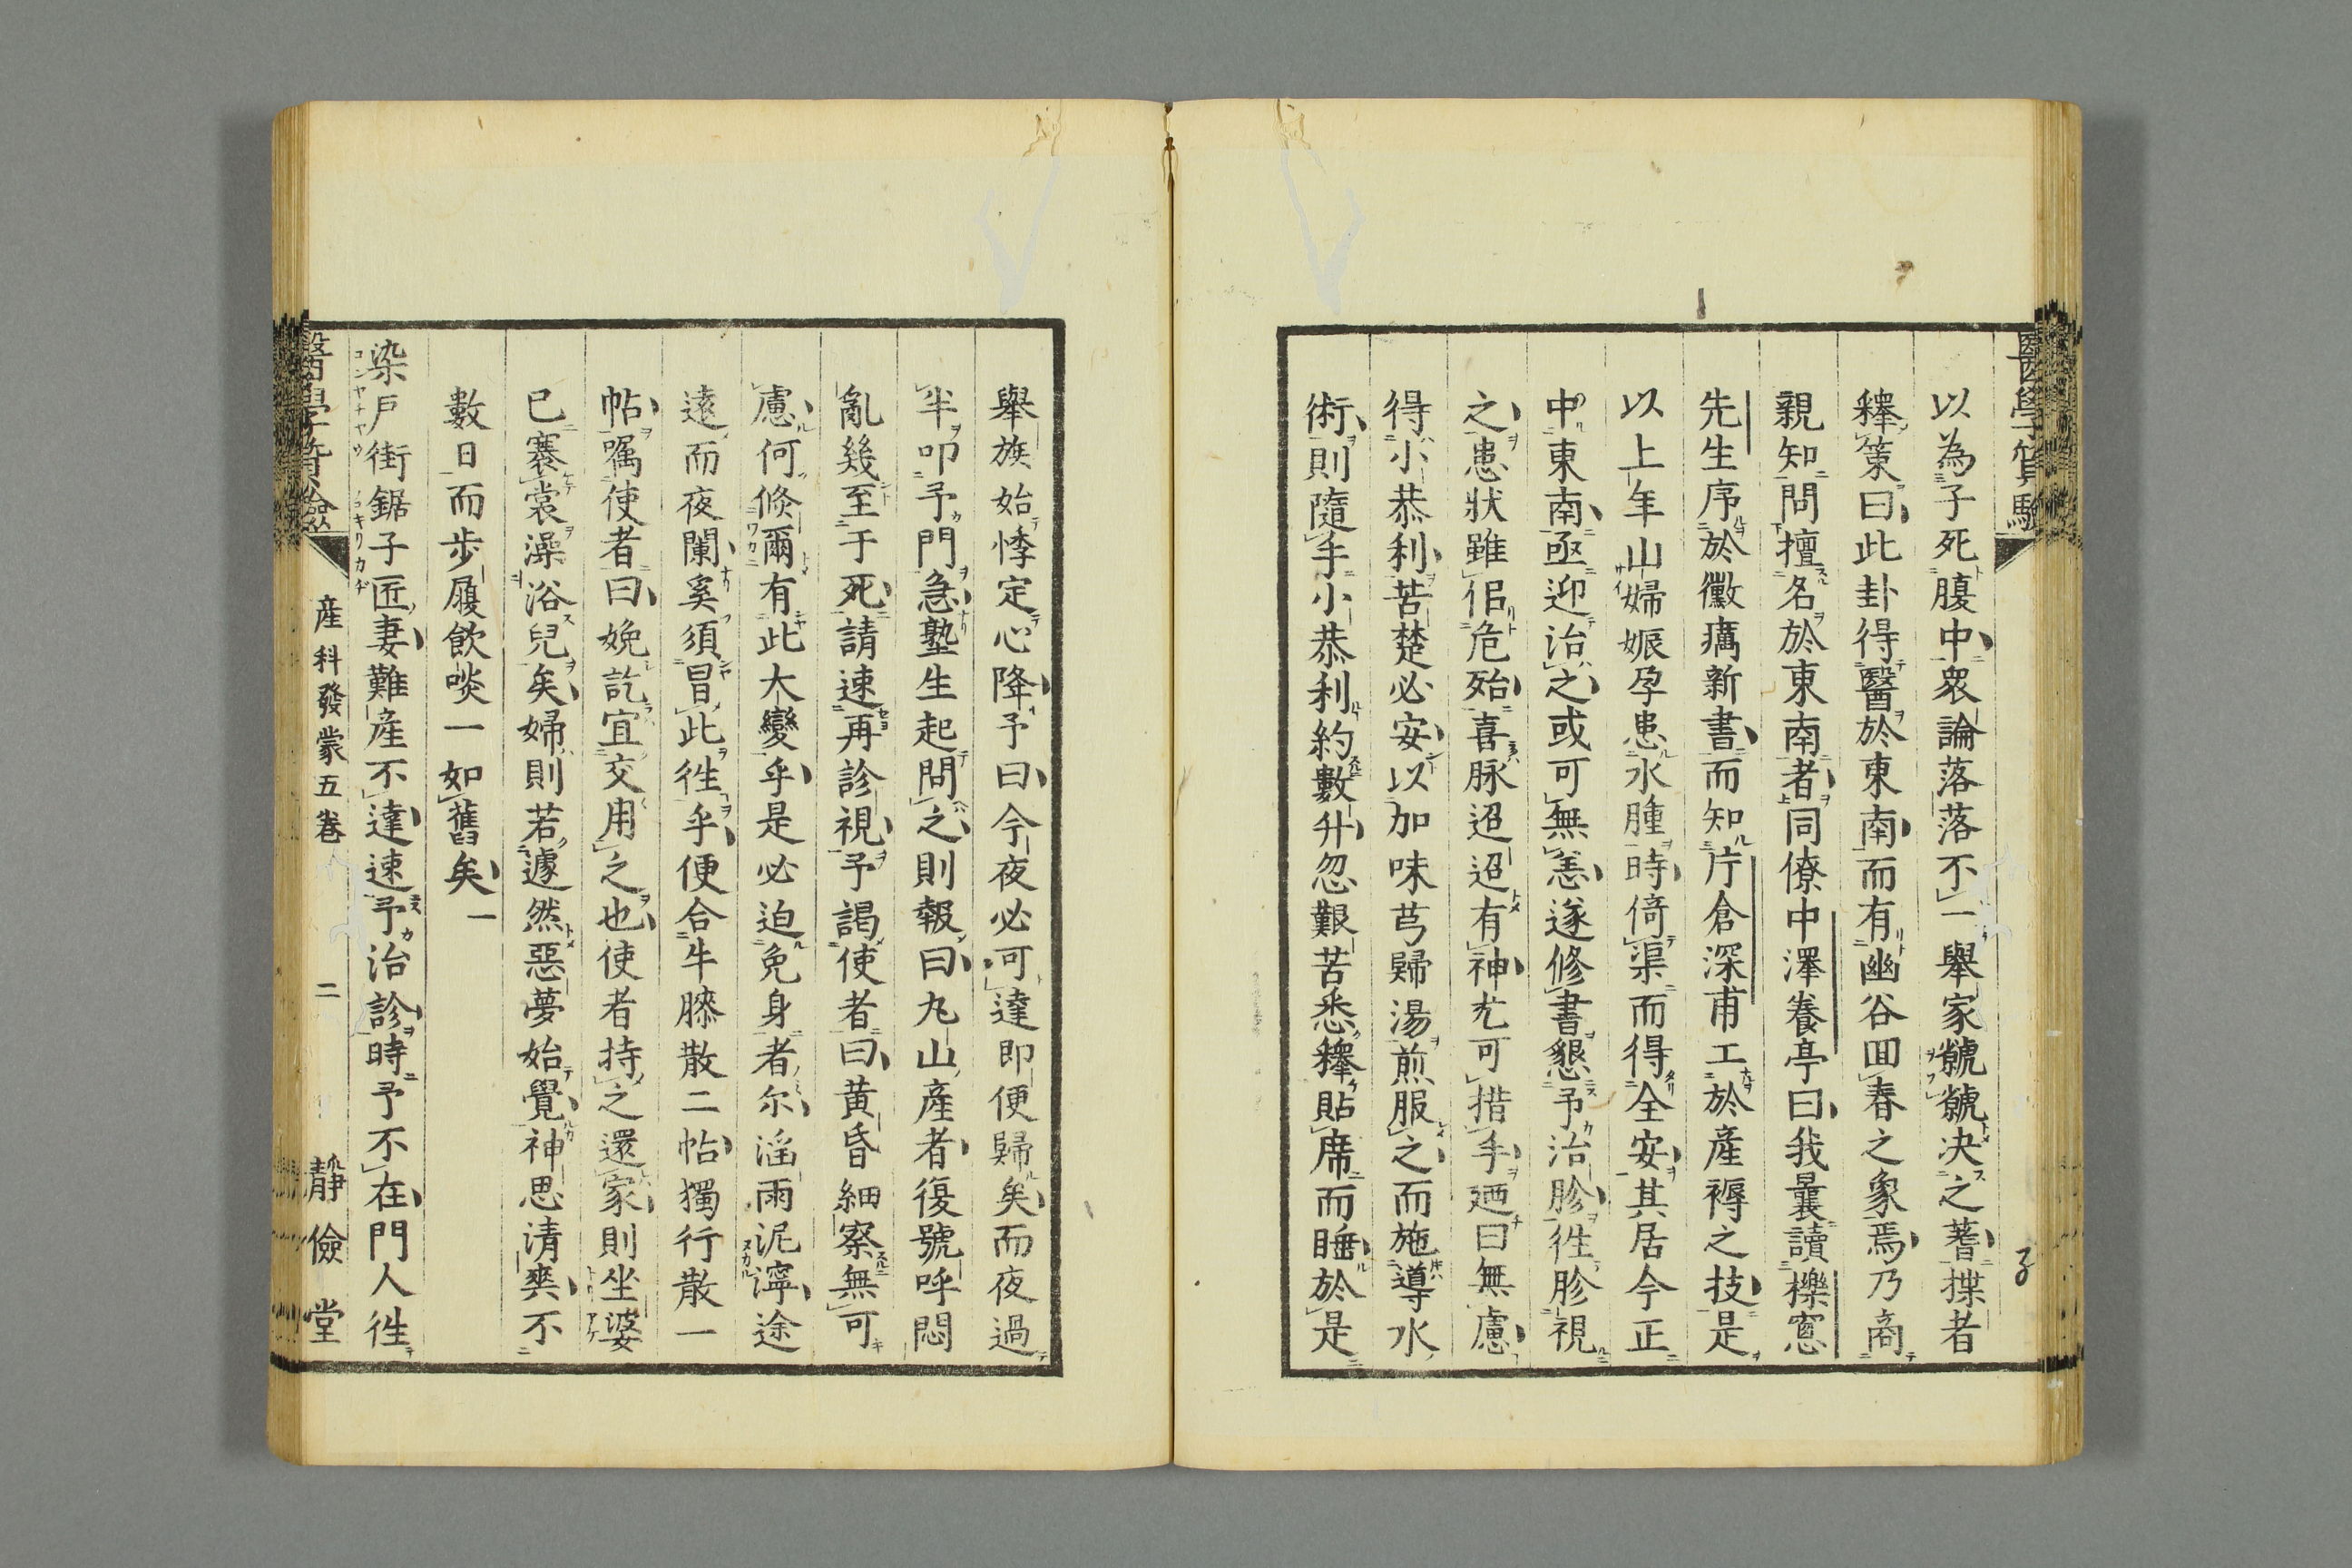 醫學質驗
以為子死腹中衆論落落不一舉家虩虩决之蓍揲者
釋策曰此卦得醫於東南而有幽谷回春之象焉乃商
親知問擅名於東南者同僚中澤養亭曰我曩讀櫟窓
先生序於黴癘新書而知片倉深甫工於産褥之技是
以上年山婦娠孕患水腫時倚渠而得全安其居今正
中東南亟迎治之或可無恙遂修書懇予治胗徃胗視
之患狀雖佀危殆喜脉迢迢有神尤可措手廼曰無慮
得小恭利苦楚必安以加味芎歸湯煎服之而施導水
術則隨手小恭利約數升忽艱苦悉釋貼席而睡於是
舉族始悸定心降予曰今夜必可達即便歸矣而夜過
半叩予門急塾生起問之則報曰丸山産者復號呼悶
亂幾至于死請速再診視予謁使者曰黄昏細察無可
慮何倏爾有此大變乎是必迫免身者尔滛雨泥濘途
遠而夜闌奚須冒此徃乎便合牛膝散二帖獨行散一
帖嘱使者曰娩訖宜交用之也使者持之還家則坐婆
已褰裳澡浴兒矣婦則若遽然惡夢始覺神思清爽不
數日而步履飲啖一如舊矣
染戶街鋸子匠妻難産不達速予治診時予不在門人徃
醫學質驗
産科發蒙五卷
二
靜儉堂